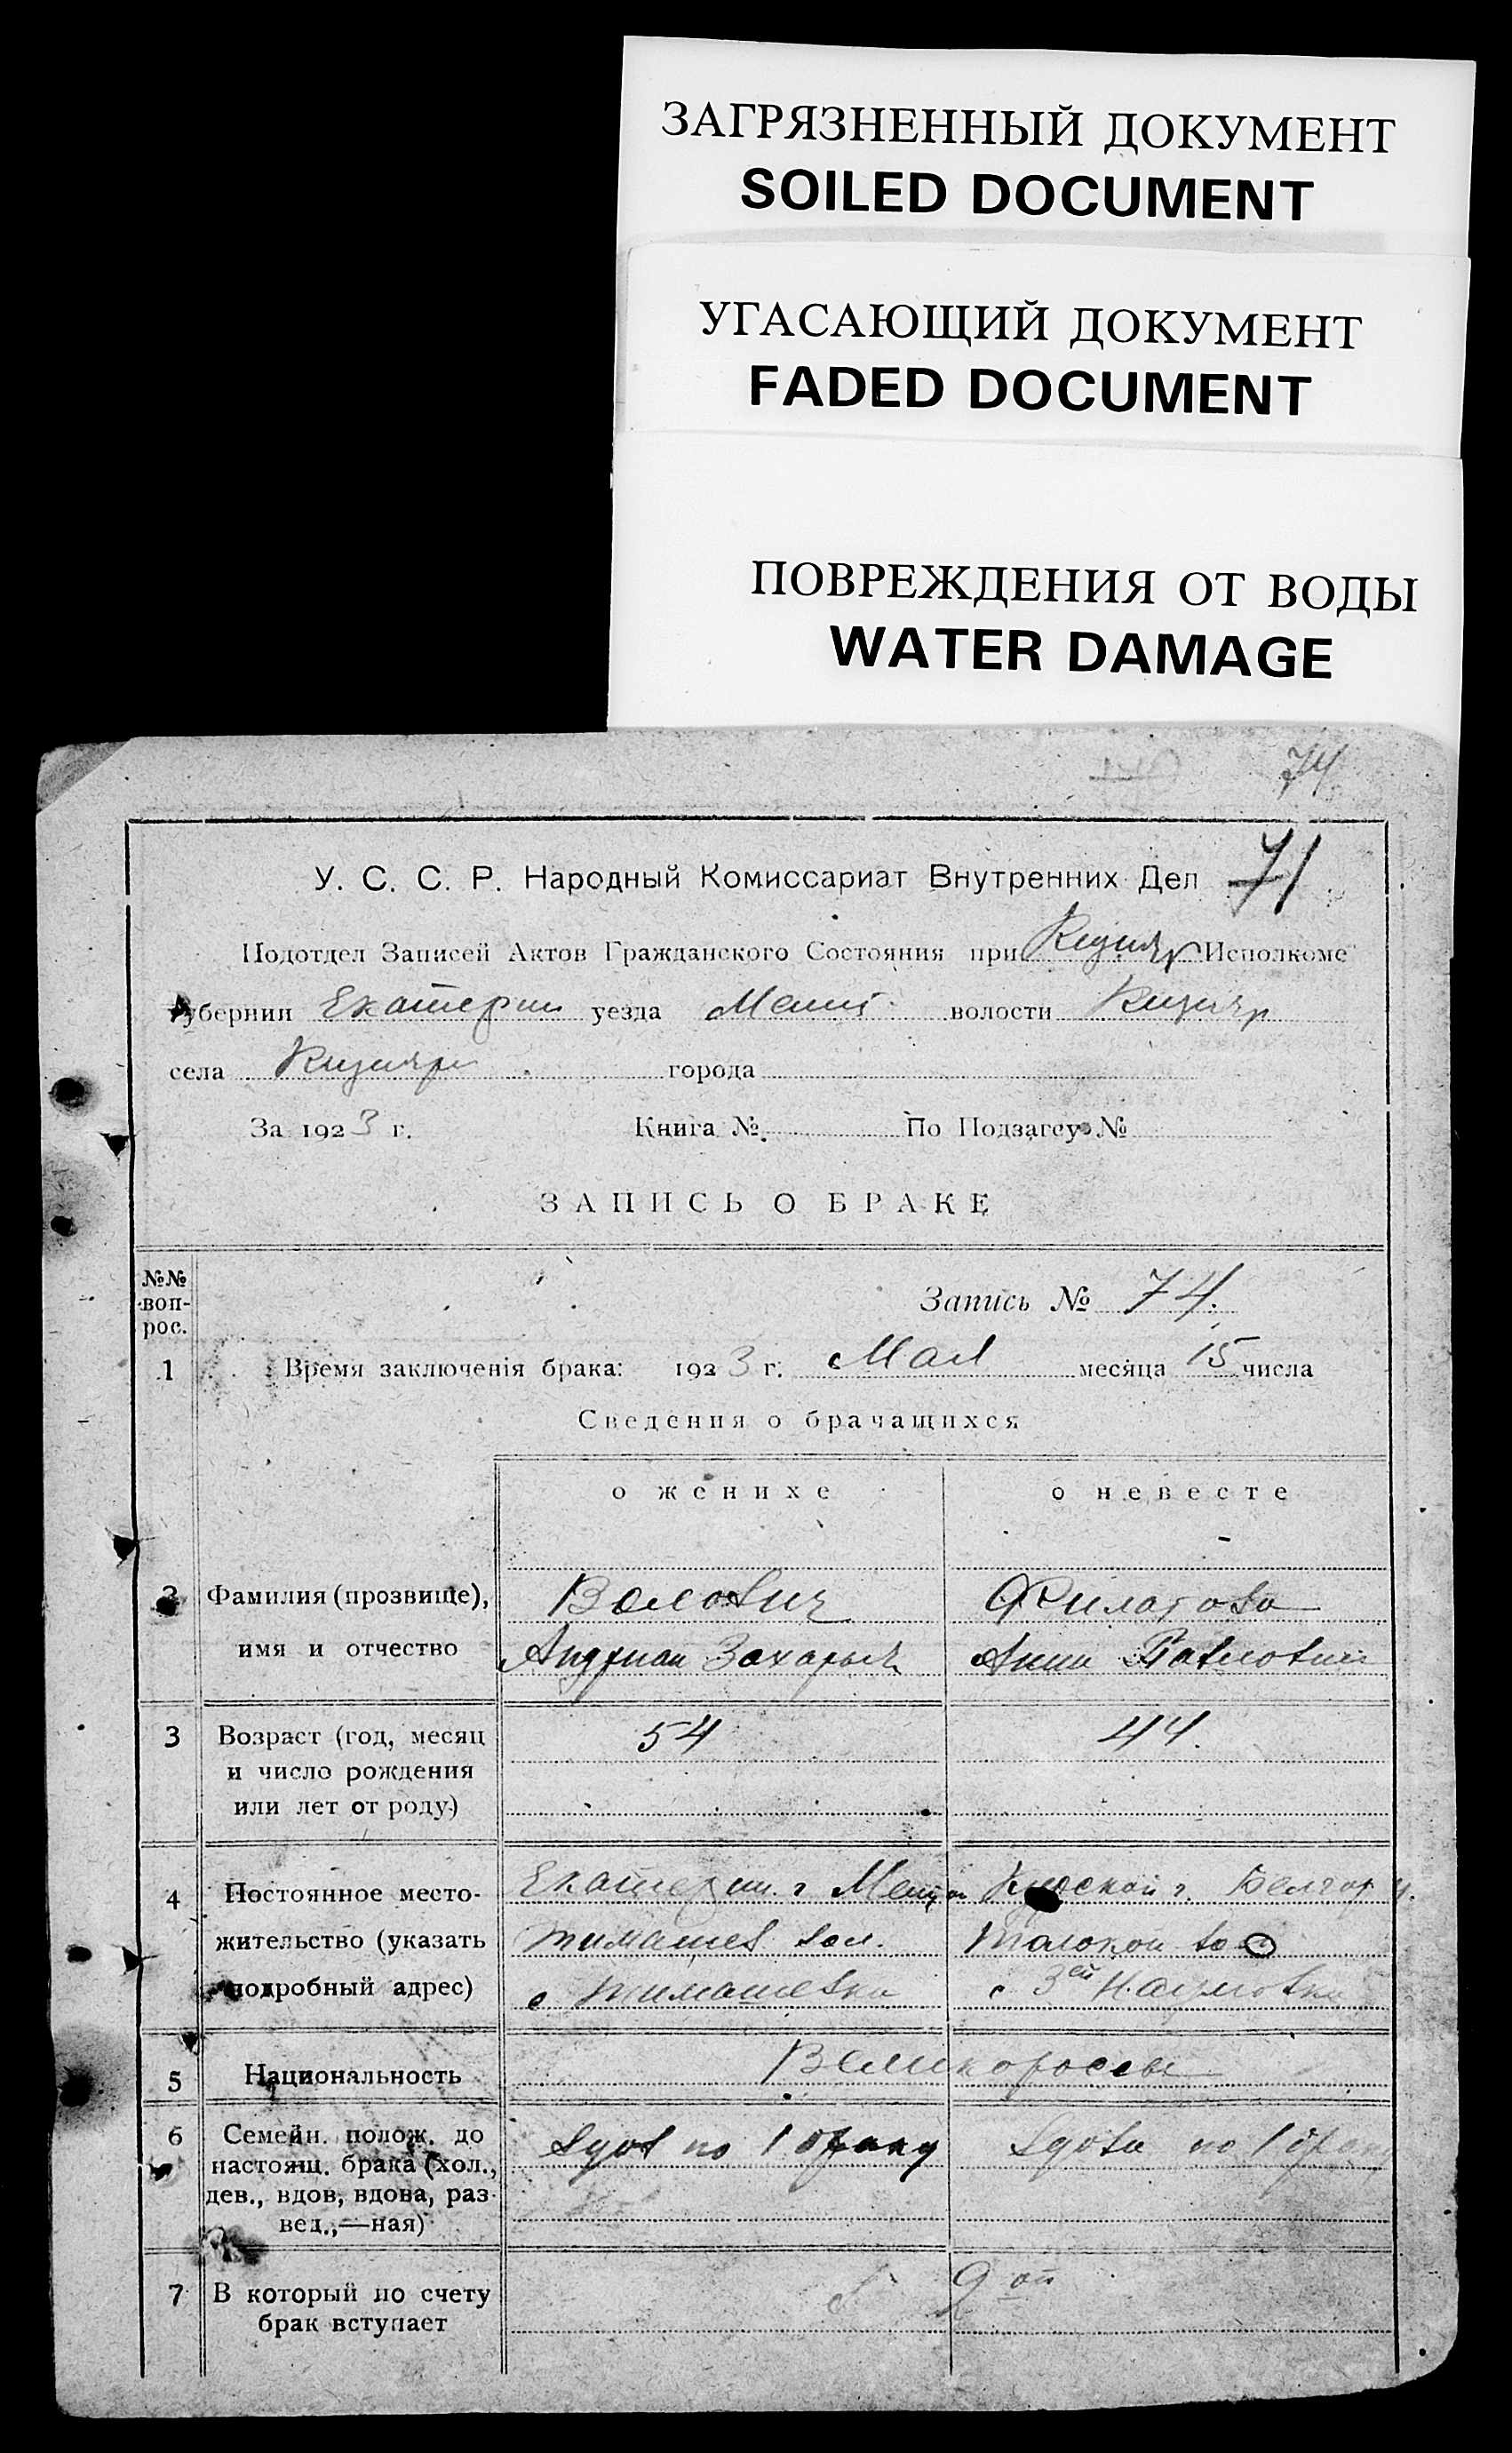 ЗАГРЯЗНЕННЫЙ ДОКУМЕНТ
SOILED DOCUMENT
УГАСАЮЩИЙ ДОКУМЕНТ
FADED DOCUMENT
ПОВРЕЖДЕНИЯ ОТ ВОДЫ
WATER DAMAGE
74
У. С. С. Р. Народный Комиссариат Внутренних Дел 71
Подотдел Записей Актов Гражданского Состояния при Кизияр Исполкоме
Губернии Екатерин уезда Мелит. волости Кизияр
села Кизияр города
За 1923 г. Книга № По Подзагсу №
ЗАПИСЬ О БРАКЕ
№№ воп-
рос.
Запись № 74.
1 Время заключенія брака: 1923 г. Мая месяца 15 числа
Сведения о брачащихся
о женихе о невесте
2 Фамилия (прозвище), Волович Филатова
имя и отчество Андриан Захарыч Анна Павловна
3 Возраст (год, месяц 54 44.
и число рождения
или лет от роду)
4 Постоянное место- Екатерин. г Мелит Курской г. Белгор у.
жительство (указать Тимашев вол. Толокон во
подробный адрес) с Тимашевка с 3ей
5 Национальность Великороссы
6 Семейн. полож. до вдов по 1 браку вдова по 1 браку
настоящ. брака (хол.,
дев., вдов, вдова, раз-
вед.,—ная)
7 В который по счету 2ой
брак вступает